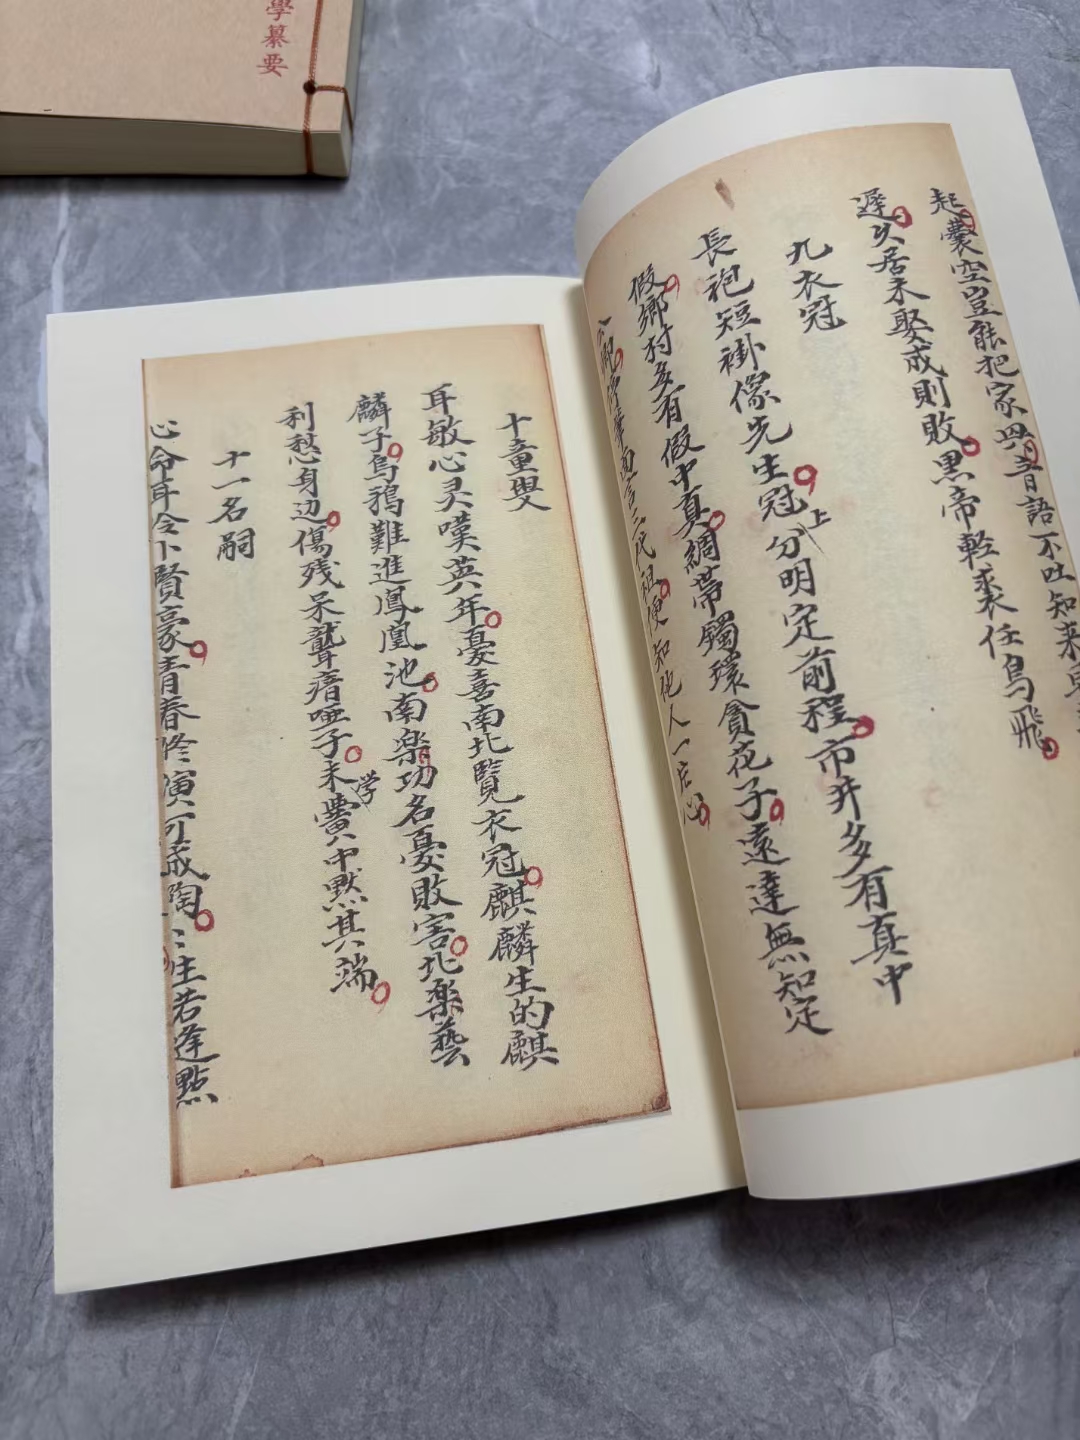 學纂要
起囊空豈能把家
音語不吐知来
遲久居未娶戒則敗黒帝輕裘任鳥飛
九衣冠
長袍短褂像先生冠上分明定前程市井多有真中
假鄉村多有假中真綢帶鐲環貪花子遠達無知定
三代祖便知他人一启心
十童叟
耳敏心灵嘆英年憂喜南北覽衣冠麒麟生的麒
麟子烏鴉難進鳳凰池南楽功名憂敗害北楽藝
利愁身边傷残呆聾瘖哑子未学黌中黙其端
十一名嗣
心命耳令卜賢豪青春修演可成陶
主若逢點